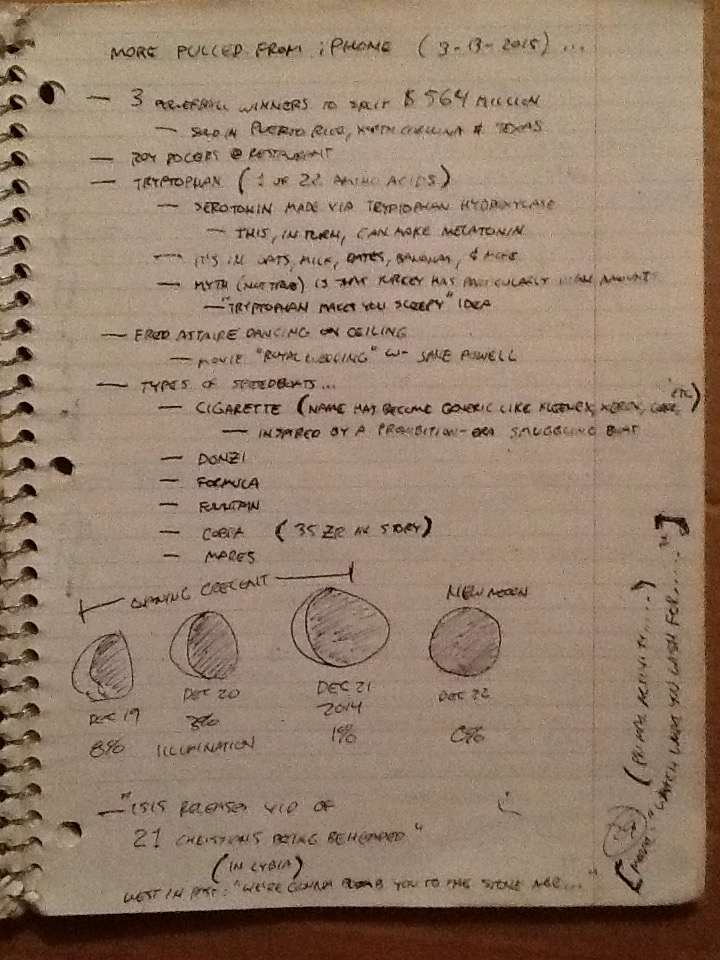 MORE PULLED FROM iPHONE (3-13-2015)...
— 3 POWERBALL WINNERS TO SPLIT $564 MILLION
— SOLD IN PUERTO RICO, NORTH CAROLINA & TEXAS
— ROY ROGERS @ RESTAURANT
— TRYPTOPHAN (1 OF 22 AMINO ACIDS)
— SEROTONIN MADE VIA TRYPTOPHAN HYDROXYLASE
— THIS, IN TURN, CAN MAKE MELATONIN
— IT'S IN OATS, MILK, DATES, BANANAS, & MORE
— MYTH (NOT TRUE) IS THAT TURKEY HAS PARTICULARLY HIGH AMOUNT
— "TRYPTOPHAN MAKES YOU SLEEPY" IDEA
— FRED ASTAIRE DANCING ON CEILING
— MOVIE "ROYAL WEDDING" W- JANE POWELL
— TYPES OF SPEEDBOATS...
— CIGARETTE (NAME HAS BECOME GENERIC LIKE KLEENEX, XEROX, COKE, ETC)
— INSPIRED BY A PROHIBITION-ERA SMUGGLING BOAT
— DONZI
— FORMULA
— FOUNTAIN
— COBRA (35 ZR IN STORY)
— MARES
WANING CRECENT
NEW MOON
DEC 19
DEC 20
DEC 21
2014
DEC 22
8%
3%
ILLUMINATION
1%
0%
— "ISIS RELEASES VID OF
21 CHRISTIANS BEING BEHEADED"
(IN LYBIA)
WEST IN PAST: "WE'RE GONNA BOMB YOU TO THE STONE AGE..."
ACTIVITY......)
"WATCH WHAT YOU WISH FOR......"]